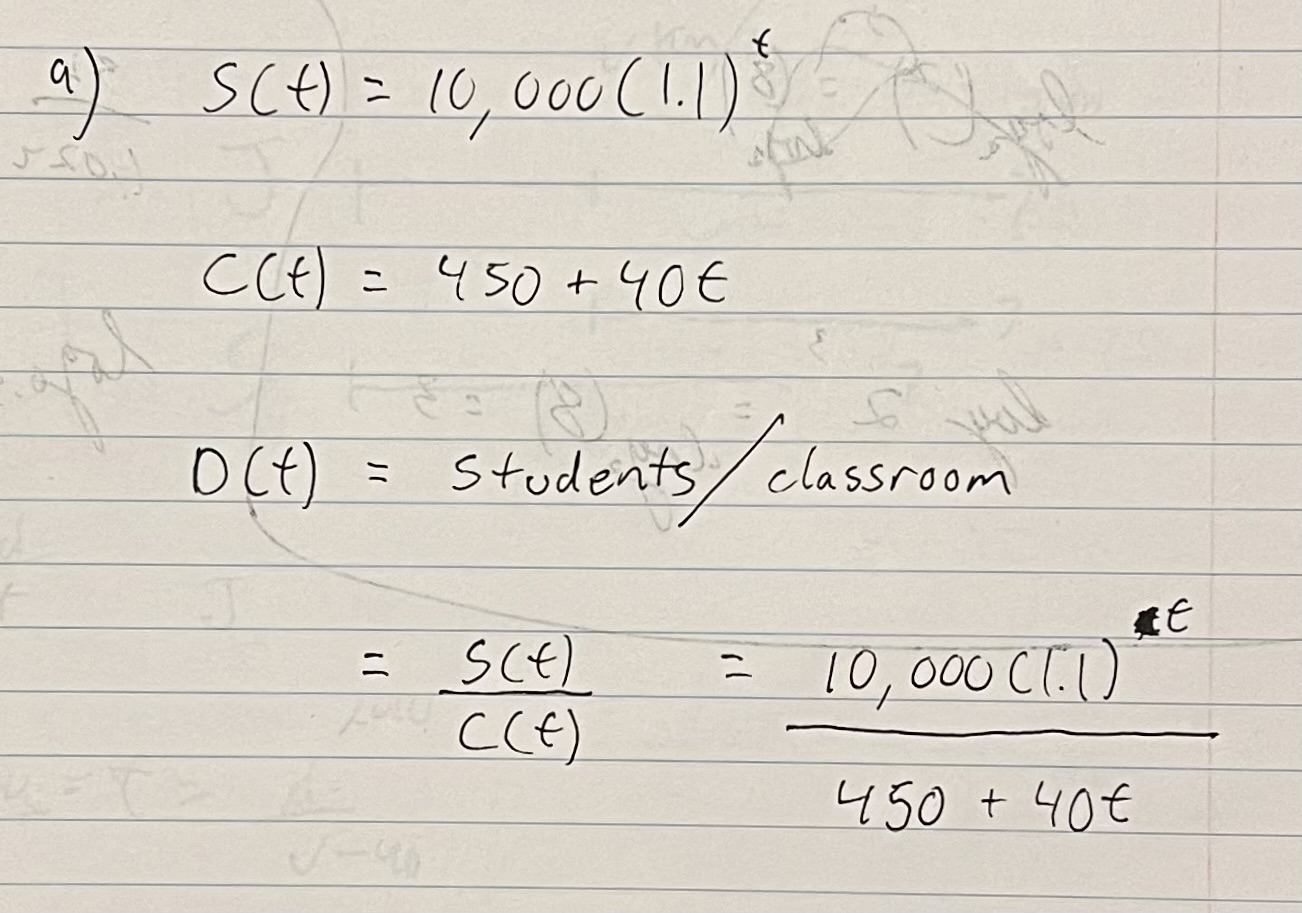 a) S(t) = 10,000(1.1)^t
C(t) = 450 + 40t
D(t) = students/classroom
= S(t)/C(t) = 10,000(1.1)^t/450 + 40t